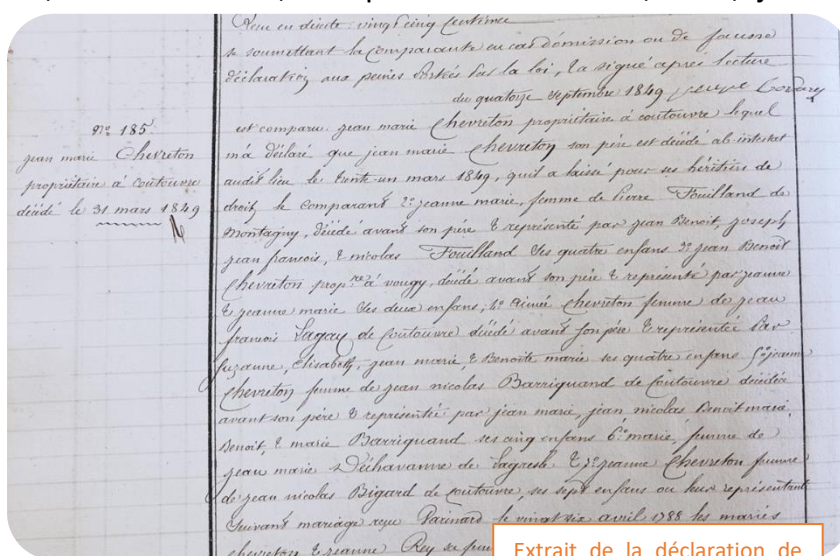 Reçu en droite : vingt cinq Centimes
se soumettant la comparante en cas d'omission ou de fausse
déclaration aux peines portées par la loi, & a signé après lecture
du quatorze Septembre 1849
Nº 185
jean marie Chevreton
propriétaire à coutouvre
décédé le 31 mars 1849
est comparu jean marie Chevreton propriétaire à coutouvre lequel
m'a déclaré que jean marie Chevreton son père est décédé ab intestat
audit lieu le trente-un mars 1849, qu'il a laissé pour ses héritiers de
droit, le comparant 2º jeanne marie, femme de Pierre Fouilland de
Montagny, décédé avant son père & représenté par jean Benoit, joseph,
jean francois, & nicolas Fouilland ses quatre enfans 3º jean Benoit
Chevreton prop.re à vougy, décédé avant son père & représenté par jeanne
& jeanne marie ses deux enfans ; 4º Aimée Chevreton femme de jean
francois Lagay de Coutouvre décédé avant son père & représentée Par
suzanne, Elisabeth, jean marie, & Benoite marie ses quatre enfans 5º jeanne
Chevreton femme de jean nicolas Barriquand de Coutouvre décédée
avant son père & représentée par jean marie, jean nicolas Benoit marie,
Benoit, & marie Barriquand ses cinq enfans 6º marie, femme de
jean marie Déchavanne de Lagresle & 7º jeanne Chevreton femme
de jean nicolas Bigard de Coutouvre, ses sept enfans ou leurs représentant
Suivant mariage reçu Parinard le vingt six avril 1788 les mariés
chevreton & jeanne Rey se
Extrait de la déclaration de